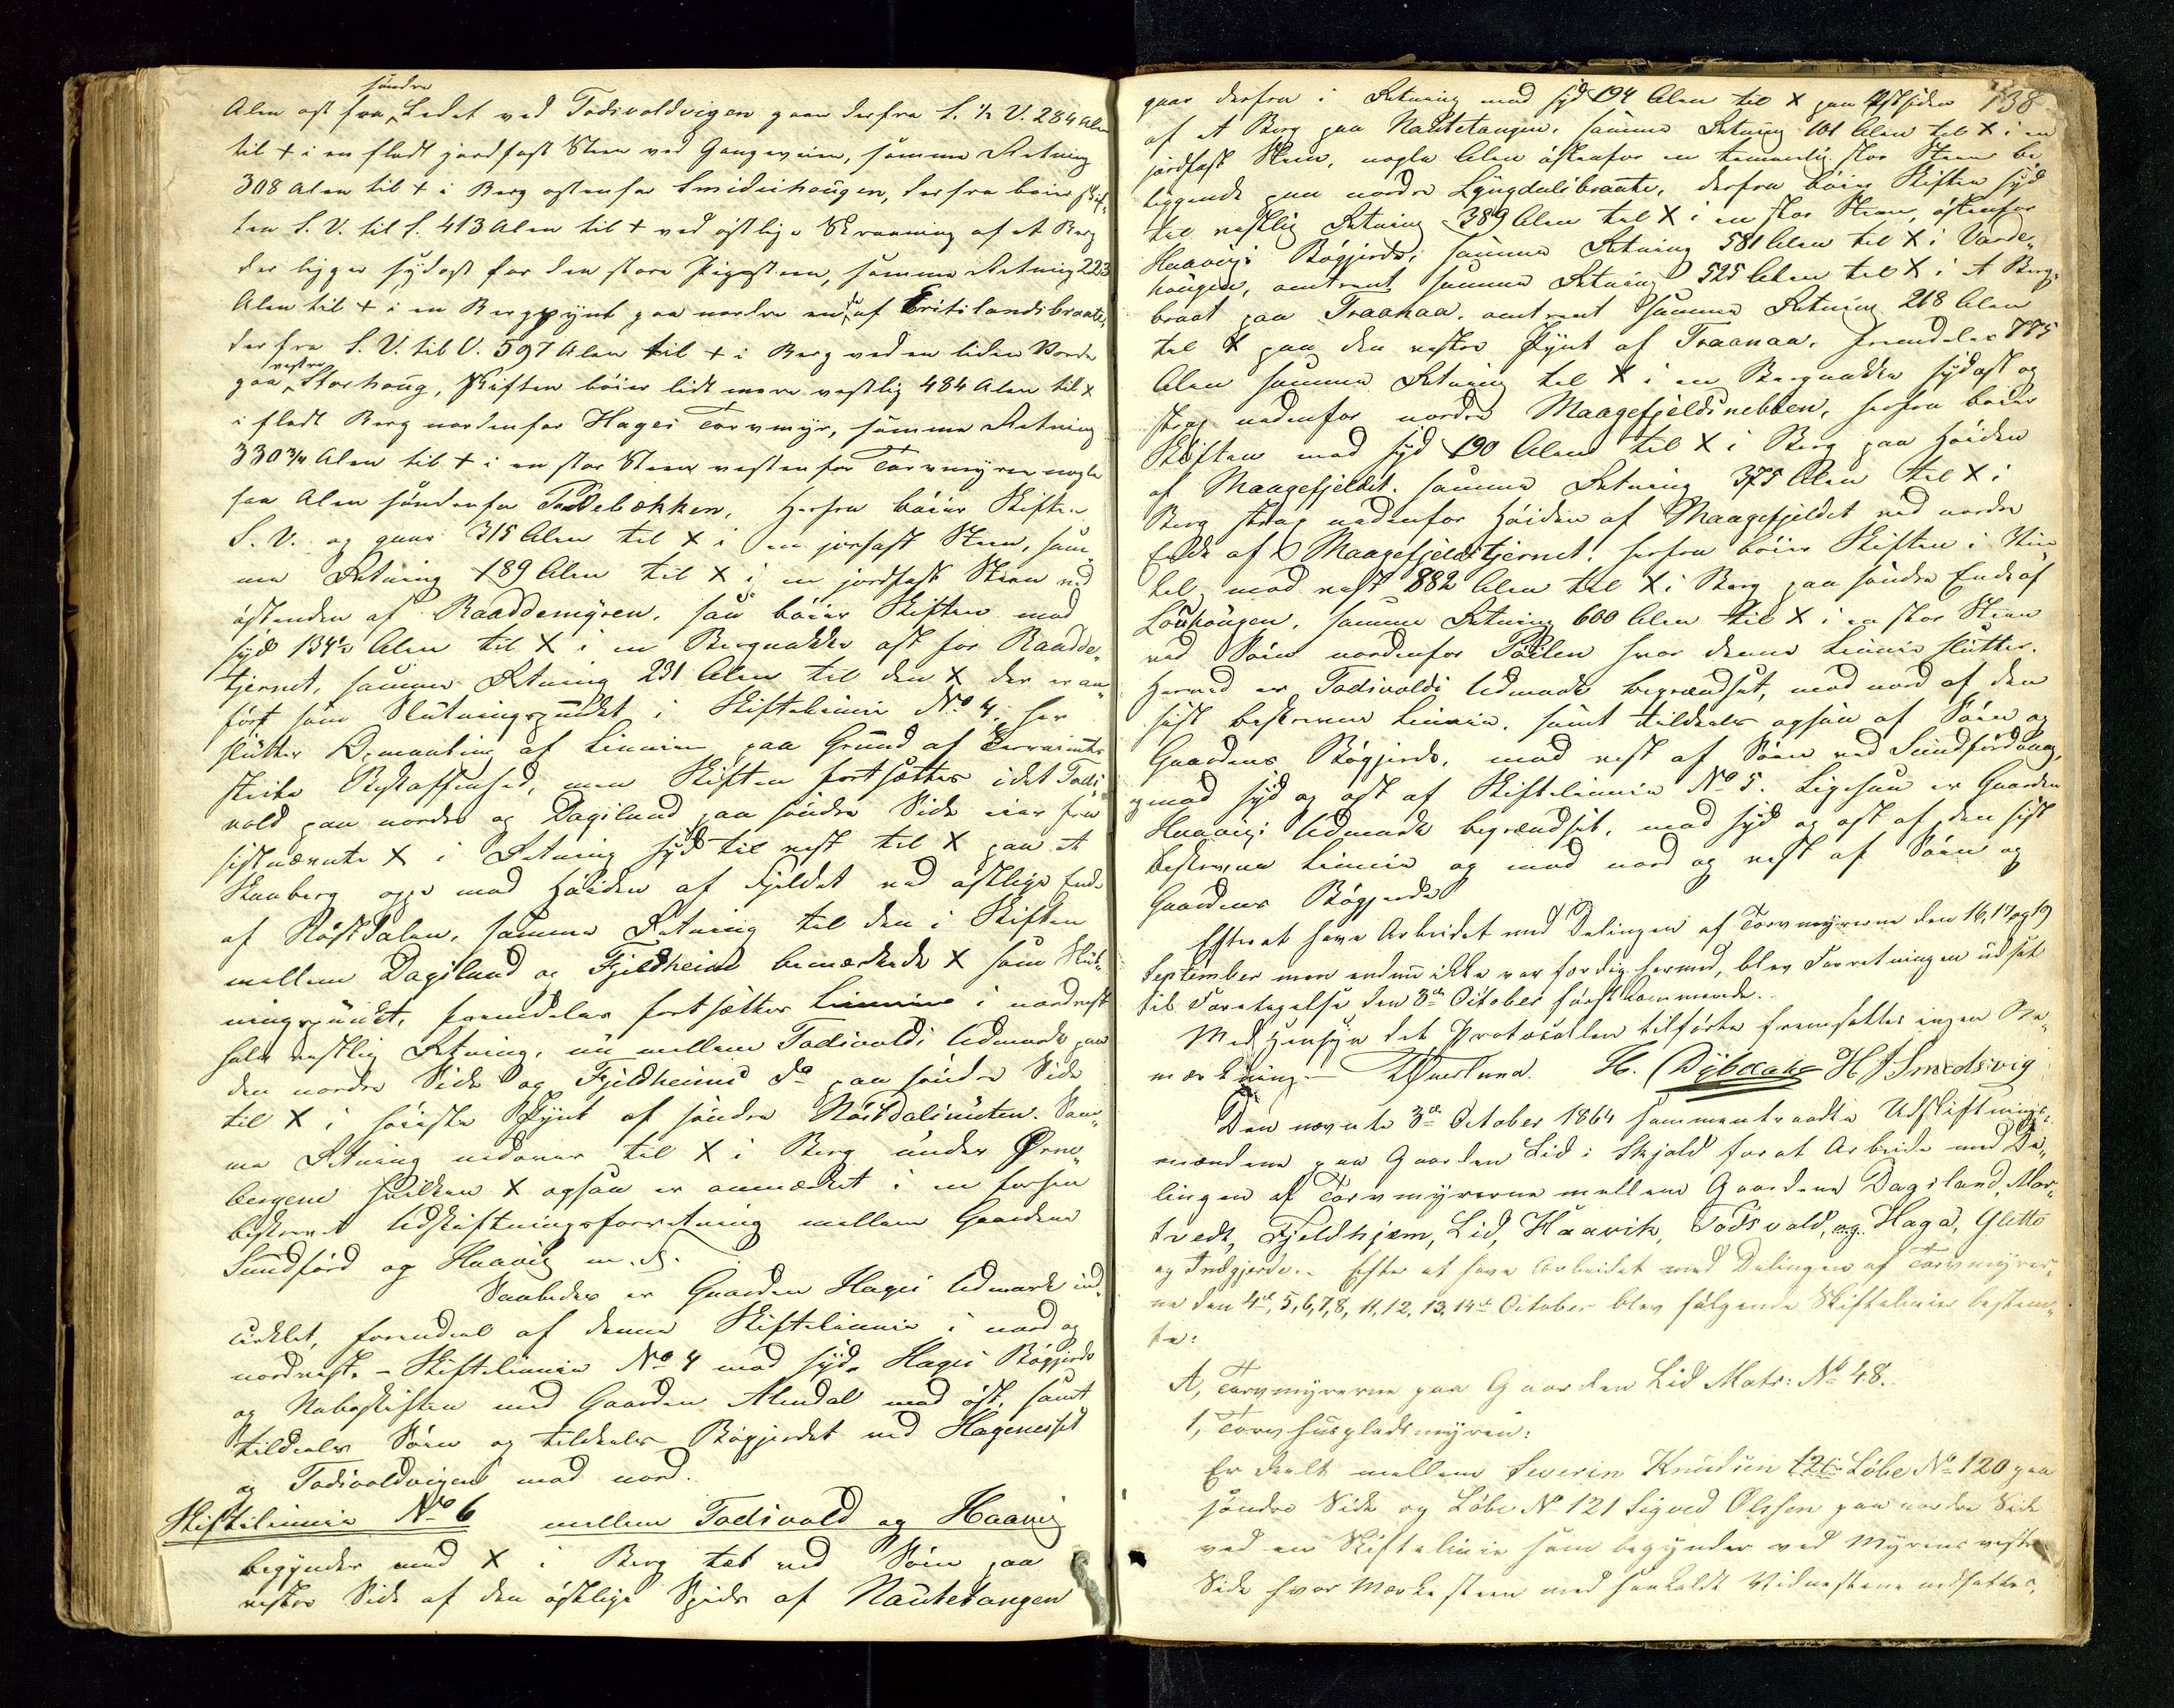 søndre
Alen ost fra Ledet ved Todsvoldvigen gaar derfra S. ½ V. 284 Alen
til + i en fladt jordfast Steen ved Gangeveien, samme Retning
308 Alen til + i Berg ostenfor Smidiehougen, derfra bøier Skif-
ten S. V. til S. 413 Alen til + ved østlige Skraaning af et Berg
der ligger sydost for den store Pigesteen, samme Retning 223
Alen til + i en Bergpynt paa nordre ende af Eritslandsbraate,
derfra S. V. til V. 597 Alen til + i Berg ved en liden Varde
vestre
paa Storhoug, Skiften bøier lidt mere vestlig 484 Alen til x
i fladt Berg nordenfor Hages Torvmyr, samme Retning
330 3/4 Alen til + i en stor Steen vestenfor Torvmyren nogle
faa Alen søndenfor Paddebækken, Herfra bøier Skiften
S. V. og gaar 315 Alen til X i en jorfast Steen, sam„
me Retning 189 Alen til X i en jordfast Steen ved
østenden af Raaddemyren, saa bøier Skiften mod
syd 134½ Alen til X i en Bergnakke ost for Raadde„
tjernet, samme Retning 231 Alen til den X der er an„
ført som Slutningspunkt i Skiftelinnie No 4, her
slutter Opmaaling af Linnien paa Grund af Terrainets
steile Beskaffenhed, men Skiften fortsættes idet Tods„
vold paa nordre og Dagsland paa søndre Side eier fra
sistnævnte X i Retning syd til vest til X paa et
Skaaberg oppe mod Høiden af Fjeldet ved østlige Ende
af Nøstdalen, samme Retning til den i Skiften
mellem Dagsland og Fjeldheim bemærkede X som Slut„
ningspunkt, fremdeles fortsætter Linnien i nordvest
halv vestlig Retning, nu mellem Todsvolds Udmark paa
den nordre Side og Fjeldheims do paa søndre Side
til X i høieste Pynt af søndre Nøstdalsnuten. Sam„
me Retning nedover til X i Berg under Ørne„
bergene hvilken X ogsaa er anmærket i en forhen
beskrevet Udskiftningsforretning mellem Gaardene
Sundførd og Haavig m. fl.
Saaledes er Gaarden Hages Udmark ind„
cirklet, forendeel af denne Skiftelinnie i nord og
nordvest. – Skiftelinnie No 4 mod syd. Hages Bøgjerde
og Naboskiften med Gaarden Alendal mod øst, samt
tildeels Søen og tildeels Bøgjerdet ved Hageneset
og Todsvoldvigen mod nord.
Skiftelinnie No 6 mellem Todsvold og Haavig
begynder med X i Berg tæt ved Søen paa
vestre Side af den østlige Spids af Nautetangen
138
gaar derfra i Retning mod syd 194 Alen til X paa Østsiden
af et Berg paa Nautetangen, samme Retning 101 Alen til X i en
jordfast Steen, nogle Alen østenfor en temmelig stor Steen be„
liggende paa nordre Lyngdalsbraute, derfra bøier Skiften syd
til vestlig Retning 389 Alen til X i en stor Steen, østenfor
Haavigs Bøgjerde, samme Retning 581 Alen til X i Varde„
hougen, omtrent samme Retning 525 Alen til X i et Berg„
braat paa Traanaa, omtrent samme Retning 218 Alen
til X paa den vestre Pynt af Traanaa, fremdeles 775
Alen samme Retning til X i en Bergnakke sydost og
strax nedenfor nordre Maagefjeldsnebben, herfra bøier
Skiften mod syd 190 Alen til X i Berg paa Høiden
af Maagefjeldet. samme Retning 375 Alen til X i
Berg strax nedenfor Høiden af Maagefjeldet ved nordre
Ende af Maagefjeldstjernet. herfra bøier Skiften i Vin„
kel mod vest 882 Alen til X i Berg paa søndre Ende af
Louhougen, samme Retning 600 Alen til X i en stor Steen
ved Søen nordenfor Pøilen hvor denne Linnie slutter.
Herved er Todsvolds Udmark begrændset, mod nord af den
sist beskrevne Linnie, samt tildeels ogsaa af Søen og
Gaardens Bøgjerde, mod vest af Søen ved Sundførdvaag
mod syd og ost af Skiftelinnie No 5. Ligesaa er Gaarden
Haavigs Udmark begrændset, mod syd og ost af den sist
beskrevne Linnie og mod nord og vest af Søen og
Gaardens Bøgjerde
Efterat have Arbeidet med Delingen af Torvmyrerne den 16, 17 og 19
September men endnu ikke var færdig hermed, blev Forretningen udsat
til Foretagelse den 3de October først kommende.
Med Hensyn det Protocollen tilførte fremsattes ingen Be„
mærkning.– H. Dybdahl H J Smedsvig
Den nævnte 3de October 1864 sammentraadte Udskiftnings„
mændene paa Gaarden Lid i Skjold for at Arbeide med De„
lingen af Torvmyrerne mellem Gaardene Dagsland, Mor„
tvedt, Fjeldhjem, Lid, Haavik, Todsvold, og Haga, Glette
og Indgjerde. Efter at have Arbeidet med Delingen af Torvmyrer„
ne den 4de, 5, 6, 7, 8, 11, 12, 13, 14de October blev følgende Skiftelinier bestem„
te:
A, Torvmyrerne paa Gaarden Lid Matr: No 48.
1, Torvhuspladsmyren:
Er deelt mellem Severin Knudsen Løbe No 120 paa
søndre Side og Løbe No 121 Sigved Olssen paa nordre Side
ved en Skiftelinie som begynder ved Myrens vestre
Side hvor Mærkesteen med saakaldt Vidnestene nedsattes,